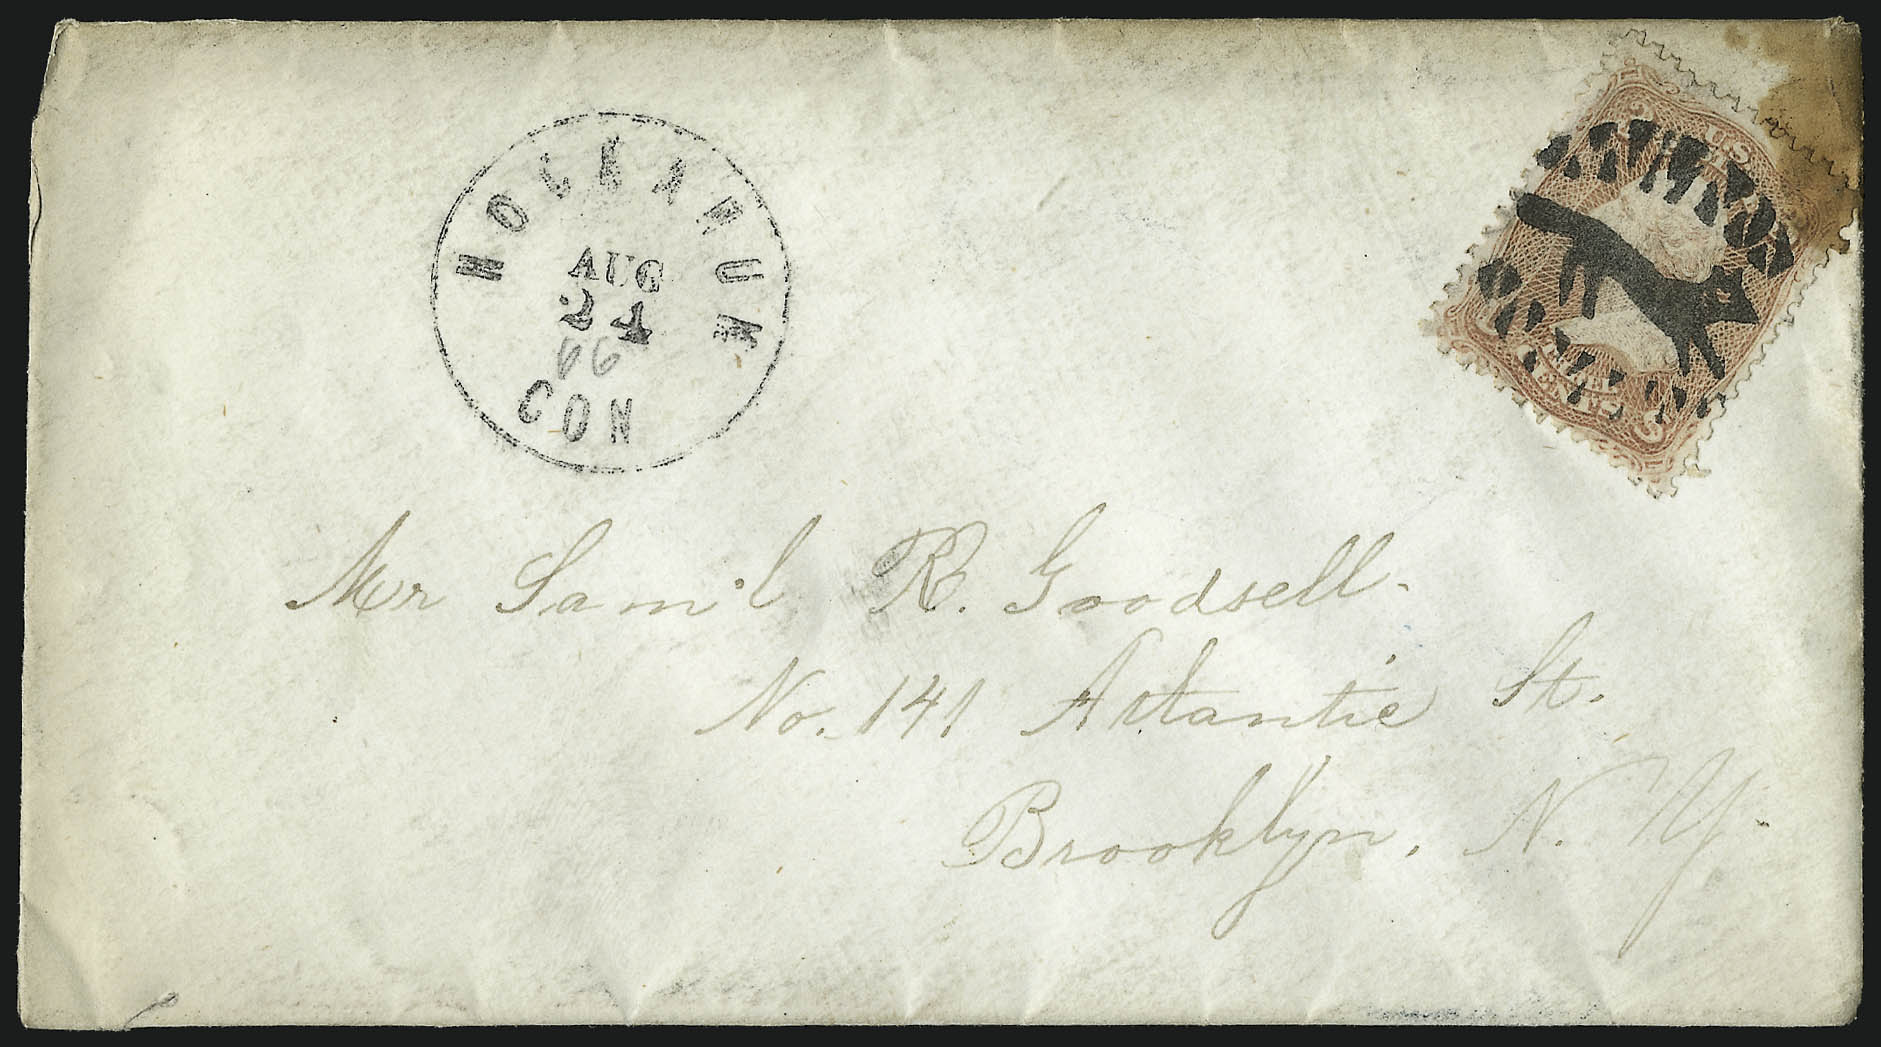 HOCKANUM
AUG
24
66
CON
U.S.
CENTS
Mr Sam'l R. Goodsell.
No. 141 Atlantic St.
Brooklyn, N. Y.